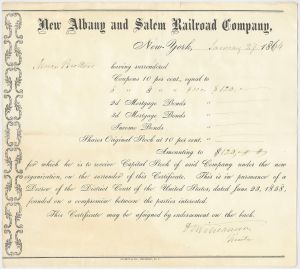 New Albany and Salem Railroad Company,
New-York, January 27, 1864
having surrendered
Coupons 10 per cent., equal to
" " " " $120
2d Mortgage Bonds "
3d Mortgage Bonds "
Income Bonds "
Shares Original Stock at 10 per cent "
Amounting to $120
for which he is to receive Capital Stock of said Company under the new
organization, on the surrender of this Certificate. This is in pursuance of a
Decree of the District Court of the United States, dated June 23, 1858,
founded on a compromise between the parties interested.
This Certificate may be assigned by endorsement on the back.